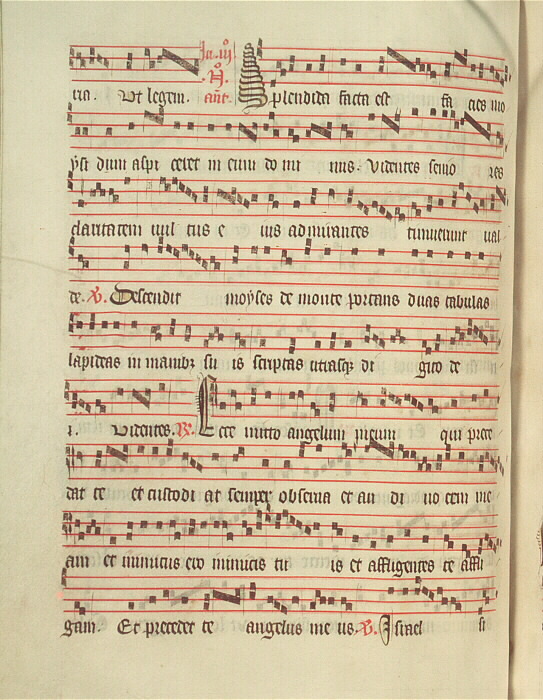 ria. Vt legem. añt. Splendida facta est fa cies mo
ysi dum aspi ceret in eum do mi nus. Videntes senio res
claritatem vul tus e ius admirantes timuerunt val
de. V. Descendit moyses de monte portans duas tabulas
lapideas in manibꝫ su is scriptas utrasqꝫ di gito de
i. Videntes. R. Ecce mitto angelum meum qui prece
dat te et custodi at semper observa et au di vo cem me
am et inimicus ero inimicis tu is et affligentes te affli
gam. Et precedet te angelus me us. V. Israel si